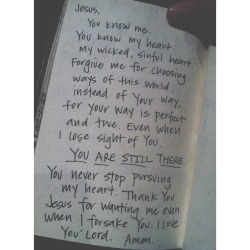 Jesus,
You know me.
You know my heart.
My wicked, sinful heart.
Forgive me for choosing
ways of this world
instead of Your way,
for Your way is perfect
and true. Even when
I lose sight of You.
YOU ARE STILL THERE.
You never stop pursuing
my heart. Thank You
Jesus for wanting me even
when I forsake You. I love
You Lord. Amen.